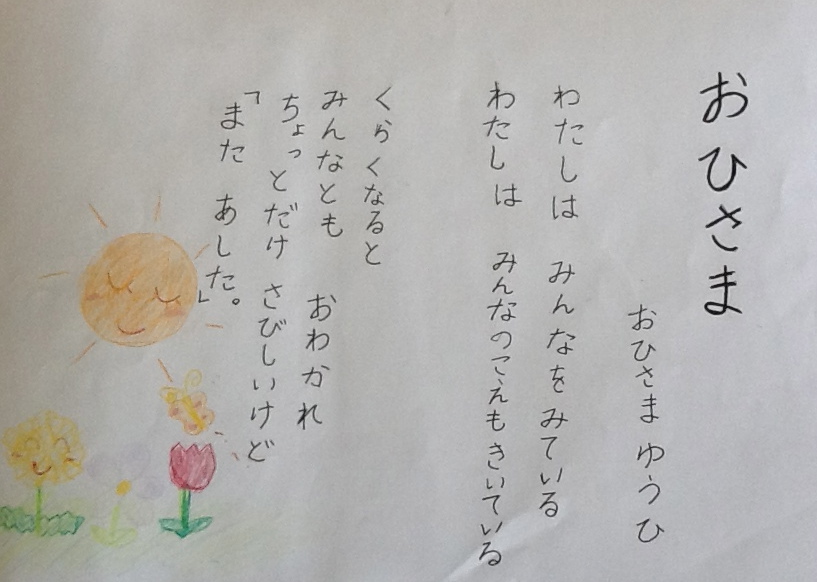 おひさま
おひさま ゆうひ
わたしは みんなを みている
わたしは みんなのこえも きいている
くらくなると
みんなとも おわかれ
ちょっとだけ さびしいけど
「また あした。」